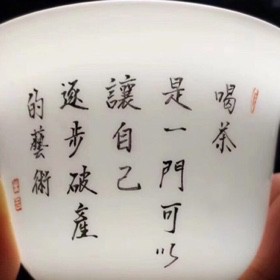 喝茶
是一門可以
讓自己
逐步破產
的藝術